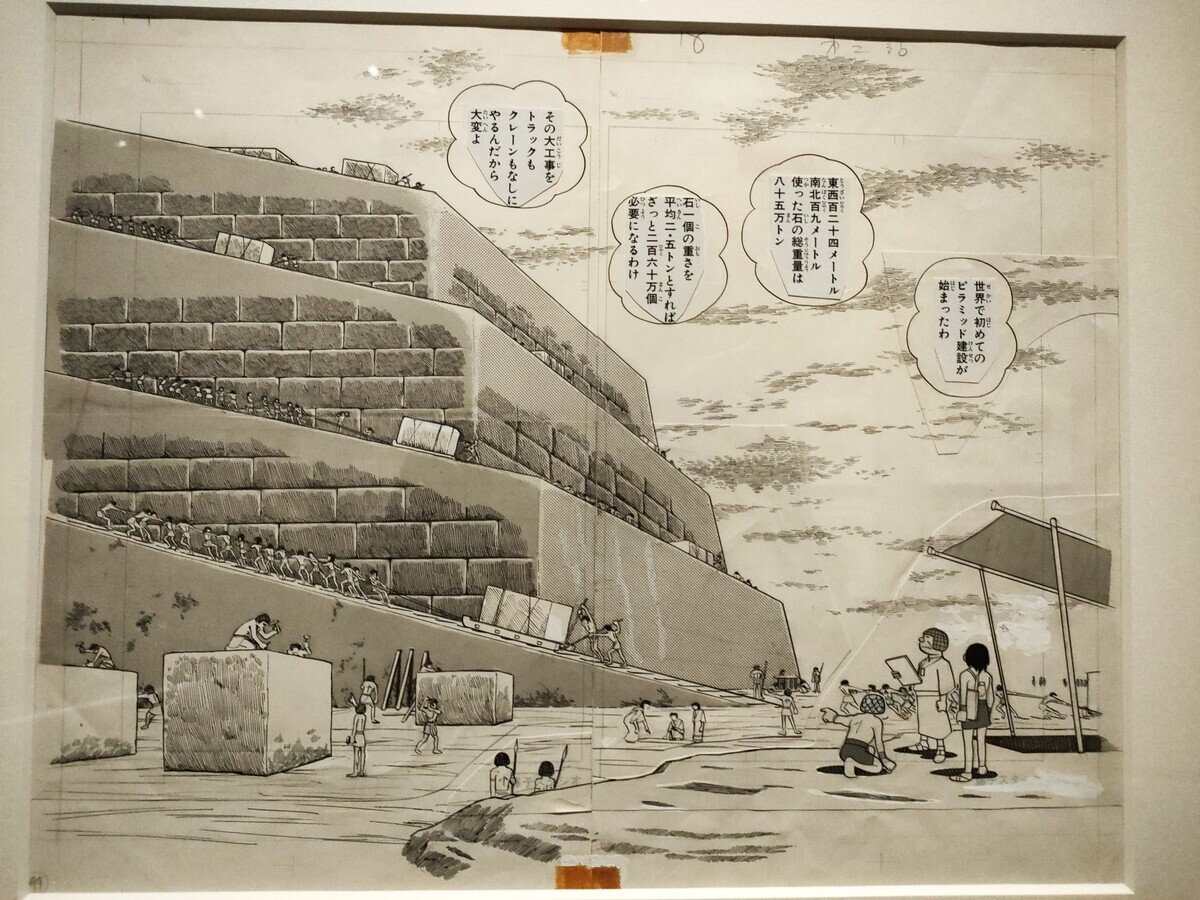 世界で初めての
ピラミッド建設が
始まったわ
東西百二十四メートル
南北百九メートル
使った石の総重量は
八十五万トン
石一個の重さを
平均二・五トンとすれば
ざっと二百六十万個
必要になるわけ
その大工事を
トラックも
クレーンもなしに
やるんだから
大変よ